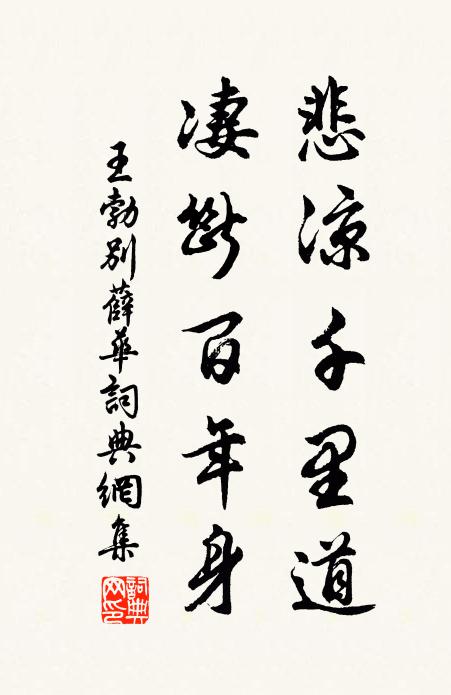 悲涼千里道
凄斷百年身
王勃別薛華詞典網集
詞典網印